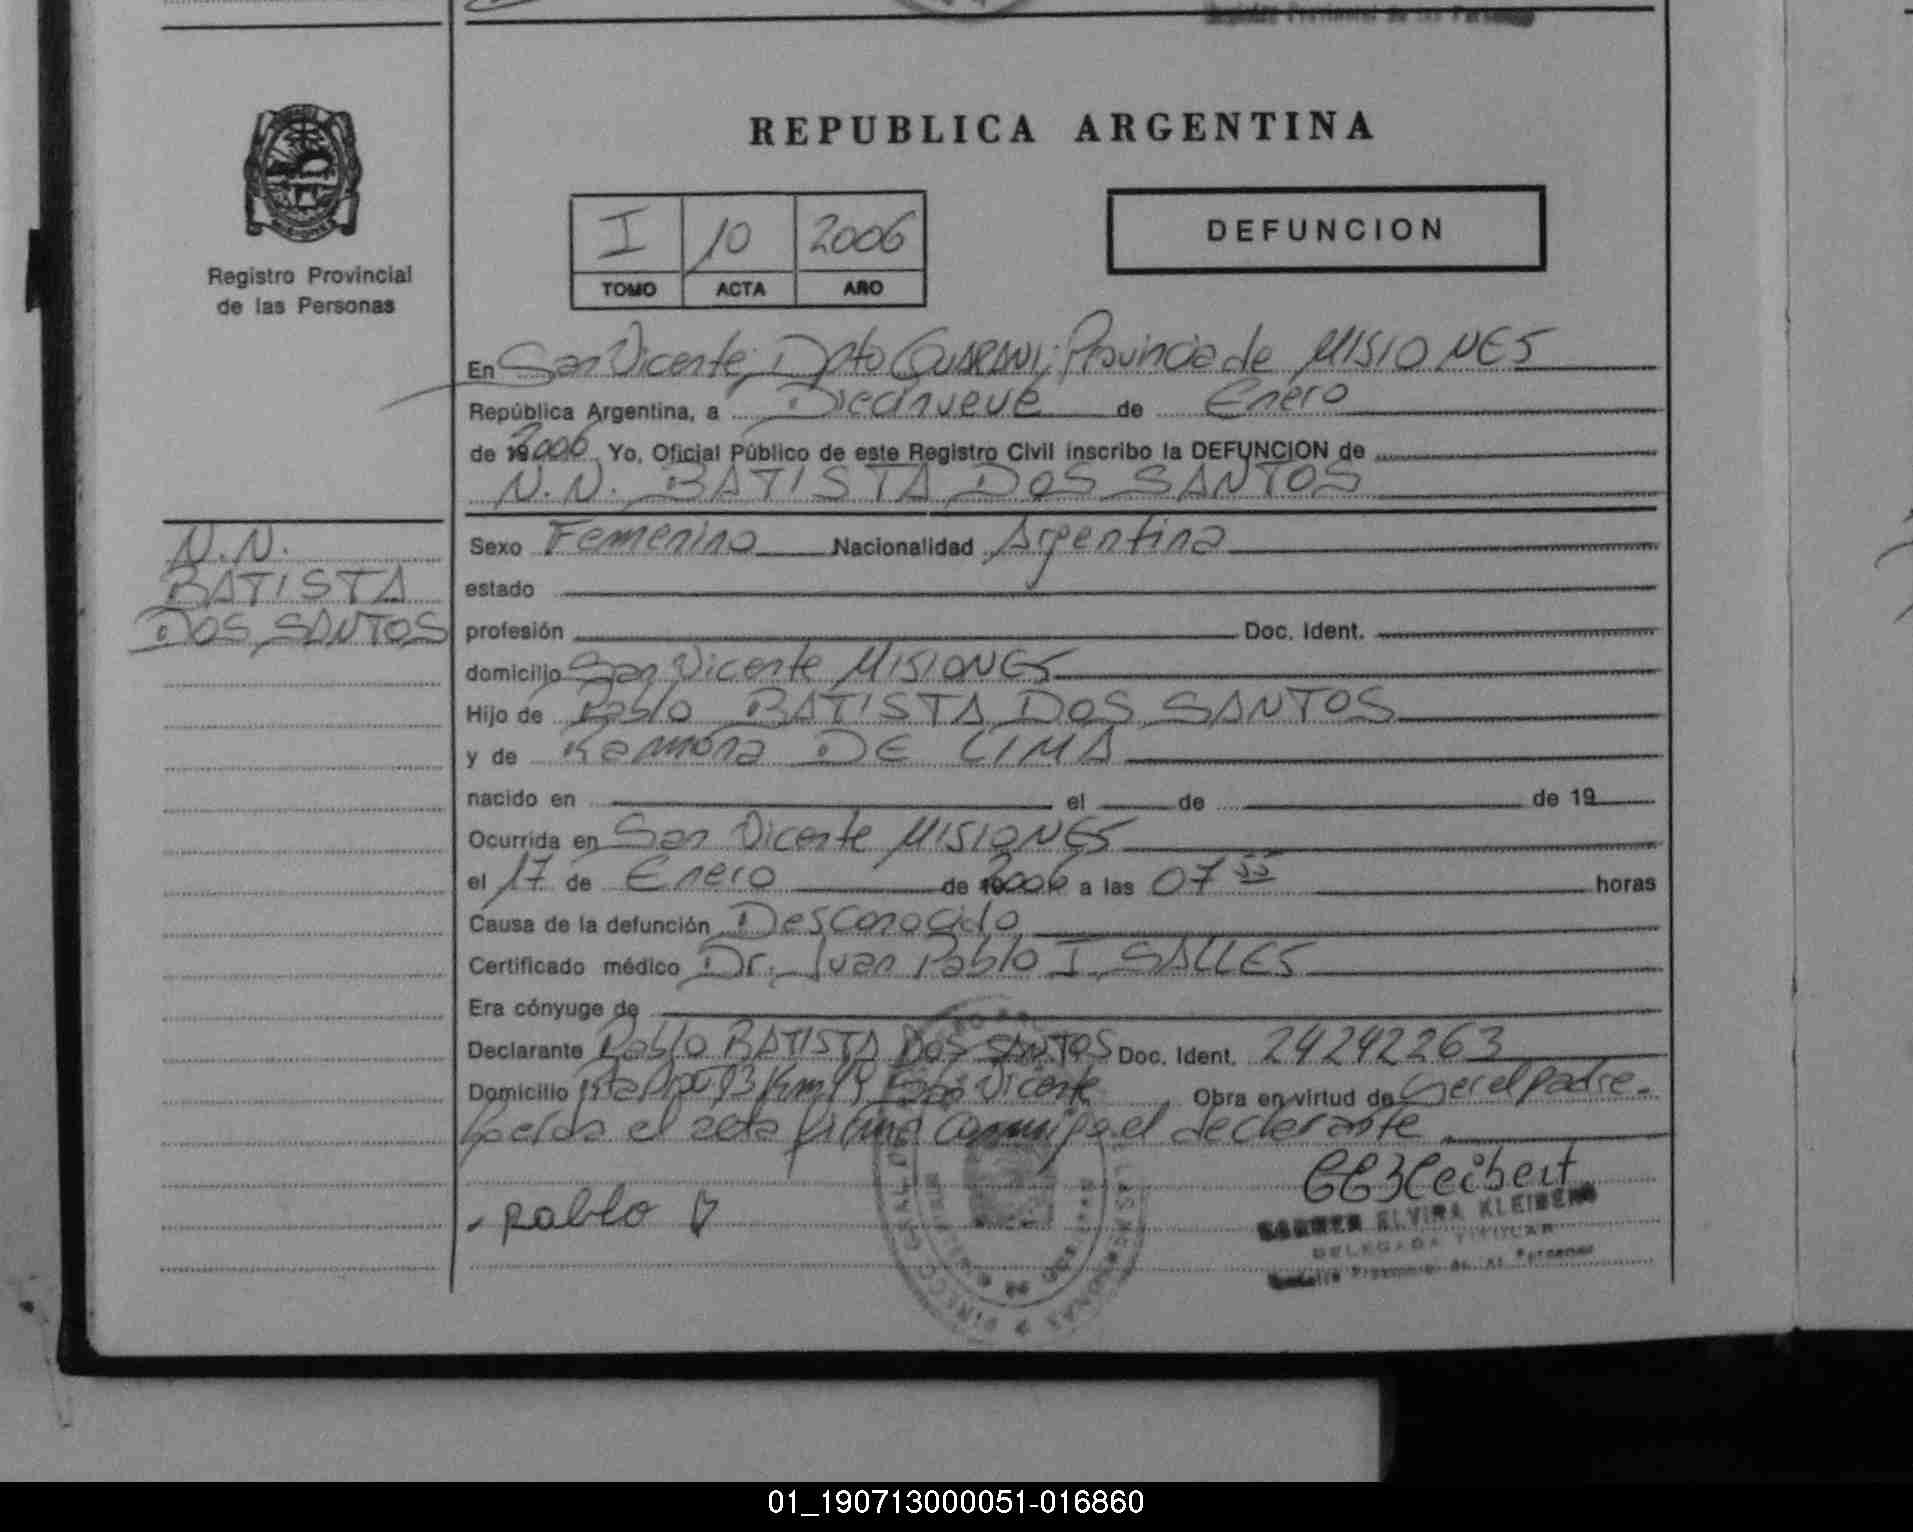 Registro Provincial de las Personas
REPUBLICA ARGENTINA
I 10 2006
TOMO ACTA AÑO
DEFUNCION
Registro Provincial
de las Personas
En San Vicente, Dpto GUARANI, Provincia de MISIONES
República Argentina, a Diecinueve de Enero
de 2006 Yo, Oficial Público de este Registro Civil inscribo la DEFUNCION de
N.N. BATISTA DOS SANTOS
N.N.
BATISTA
DOS SANTOS
Sexo Femenino Nacionalidad Argentina
estado
profesión Doc. Ident.
domicilio San Vicente MISIONES
Hijo de Pablo BATISTA DOS SANTOS
y de Ramona DE LIMA
nacido en el de de 19
Ocurrida en San Vicente MISIONES
el 17 de Enero de 2006 a las 07 55 horas
Causa de la defunción Desconocido
Certificado médico Dr. Juan Pablo I. SALLES
Era cónyuge de
Declarante Pablo BATISTA DOS SANTOS Doc. Ident. 24242263
Domicilio Km San Vicente Obra en virtud de ser el padre.
Leída el acta firma conmigo el declarante
pablo
ELVIRA KLEIBERT
DELEGADA TITULAR
01_190713000051-016860